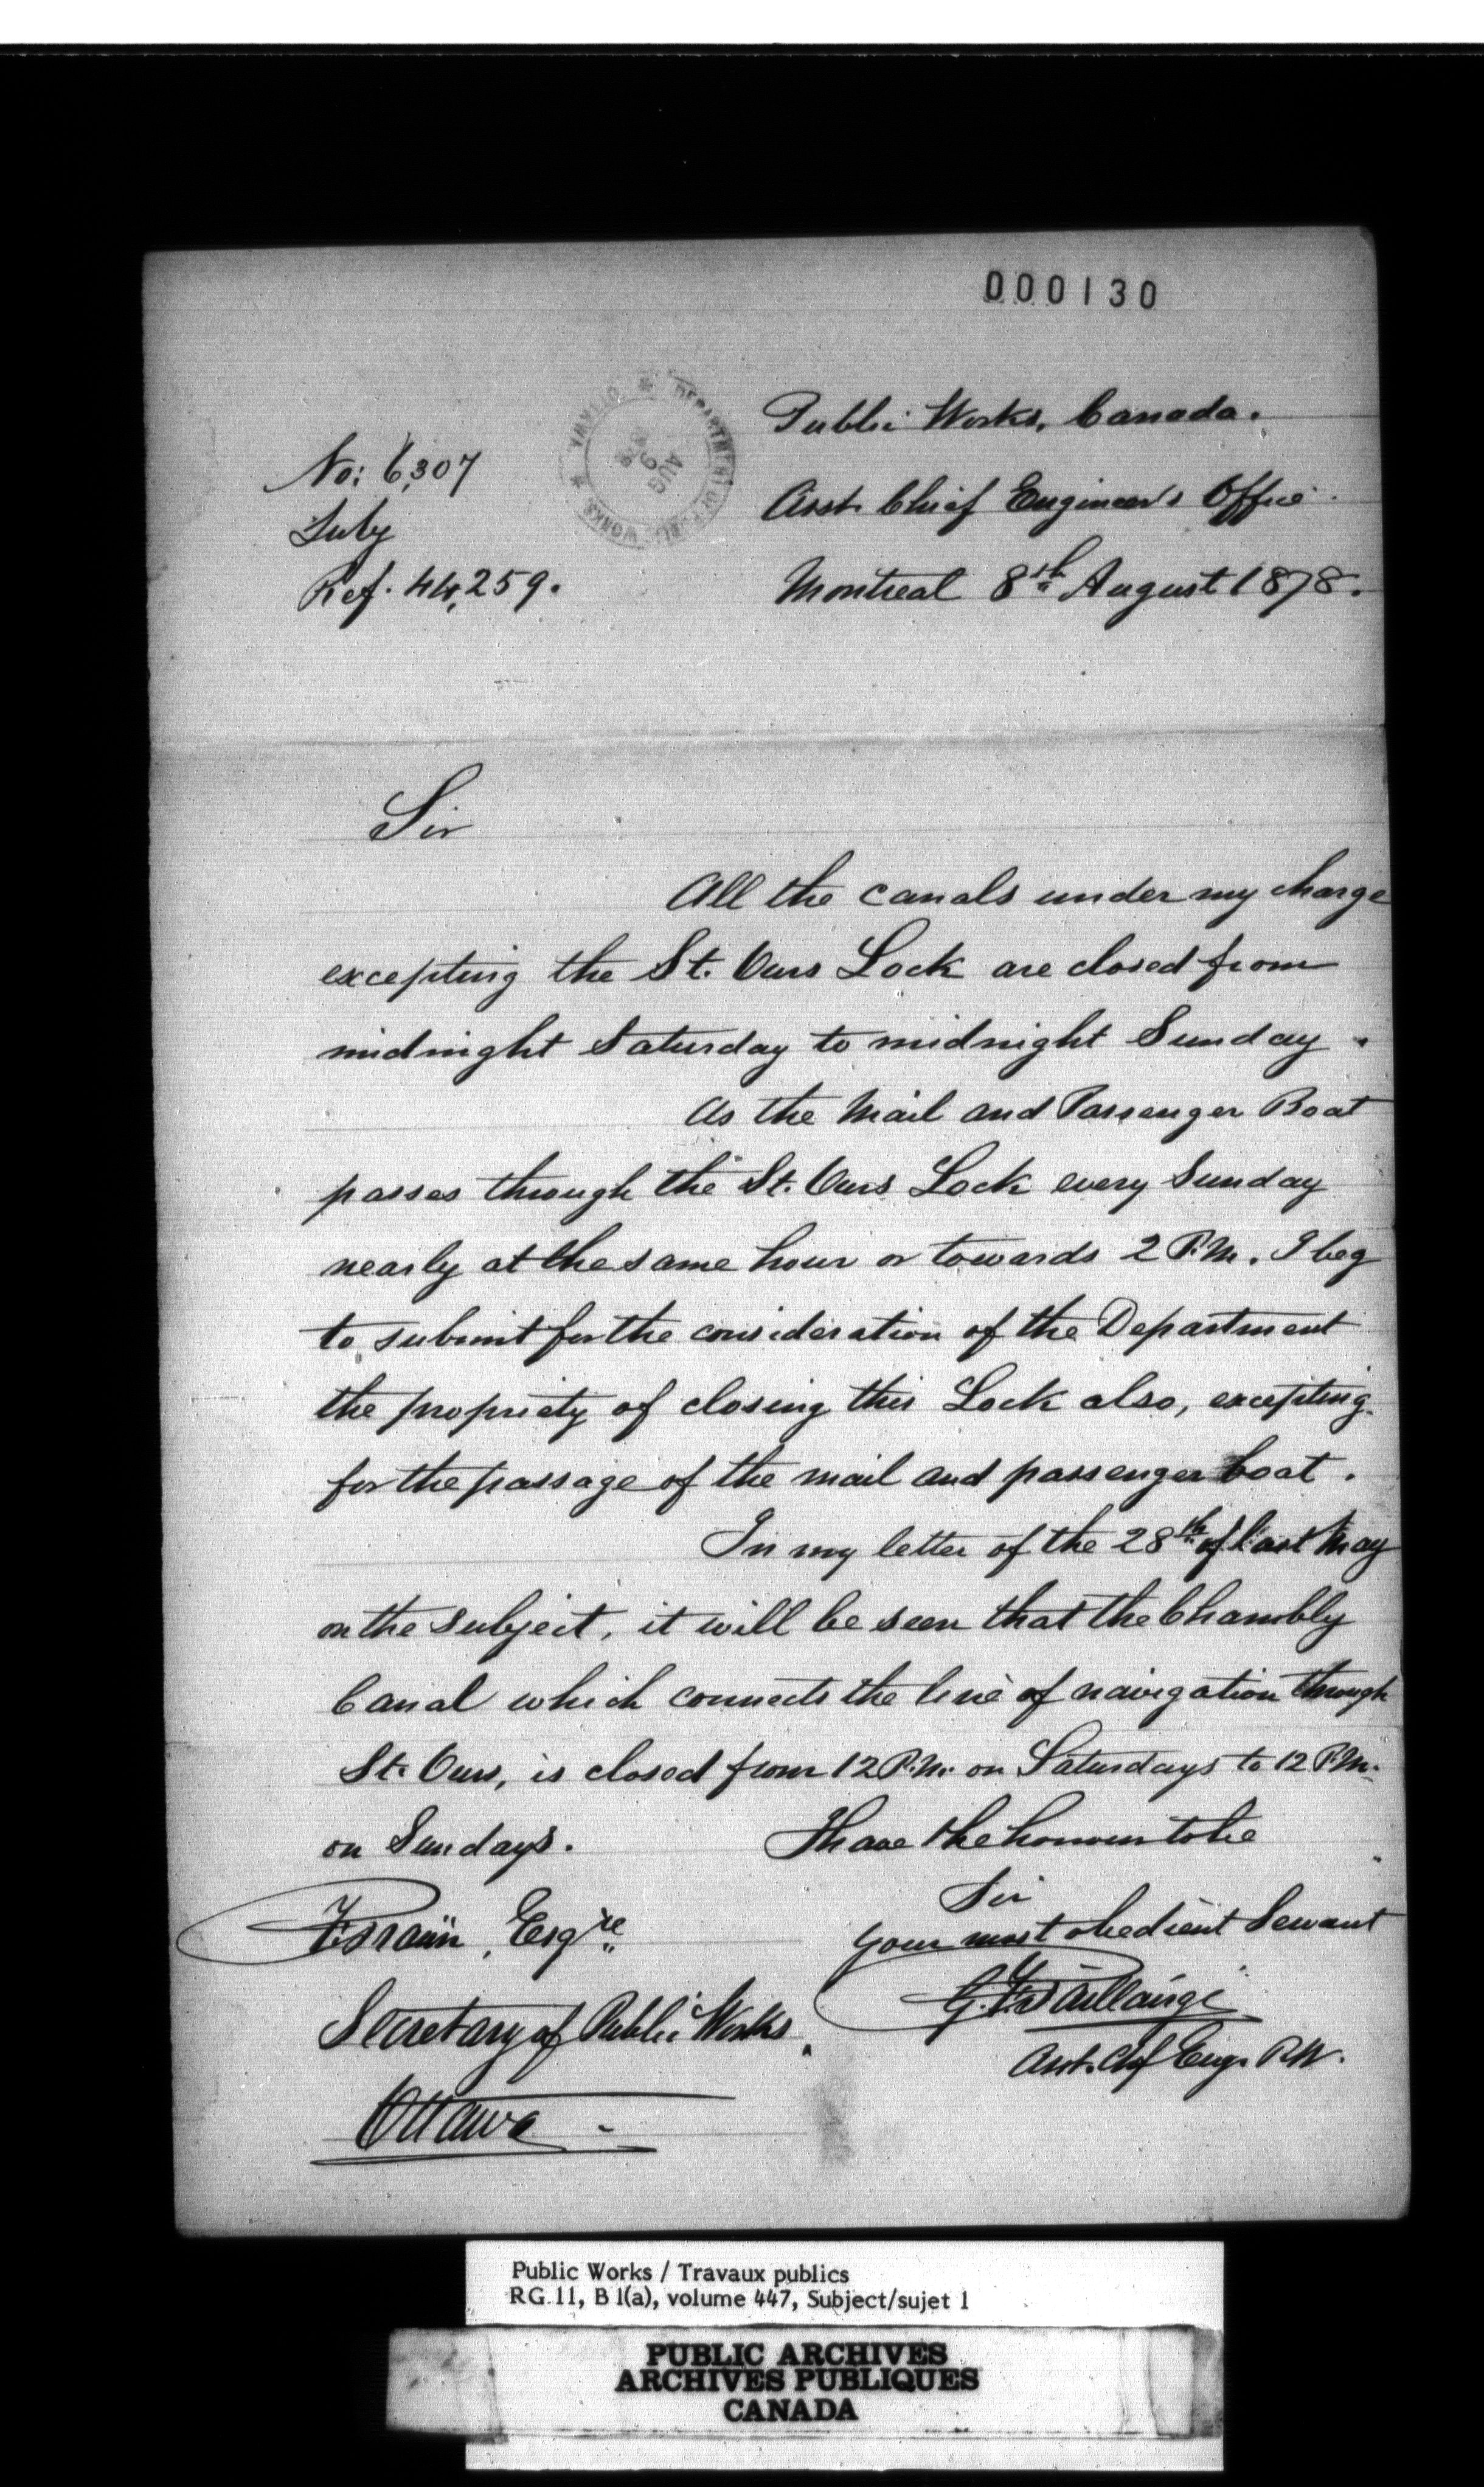 000130
DEPARTMENT OF PUBLIC WORKS * OTTAWA *
AUG 9 1878
Public Works, Canada.
Asst. Chief Engineer's Office.
Montreal 8th August 1878.
No: 6,307
July
Ref. 44,259.
Sir
All the canals under my charge
excepting the St. Ours Lock are closed from
midnight Saturday to midnight Sunday.
As the Mail and Passenger Boat
passes through the St. Ours Lock every Sunday
nearly at the same hour or towards 2 P.M. I beg
to submit for the consideration of the Department
the propriety of closing this Lock also, excepting
for the passage of the mail and passenger boat.
In my letter of the 28th of last May
on the subject, it will be seen that the Chambly
Canal which connects the line of navigation through
St. Ours, is closed from 12 P.M. on Saturdays to 12 P.M.
on Sundays.
I have the honour to be
Sir
Your most obedient Servant
G.F. Baillairgé
Asst. Chf Engr. P.W.
F. Braün, Esqre
Secretary of Public Works,
Ottawa
Public Works / Travaux publics
RG 11, B 1(a), volume 447, Subject/sujet 1
PUBLIC ARCHIVES
ARCHIVES PUBLIQUES
CANADA